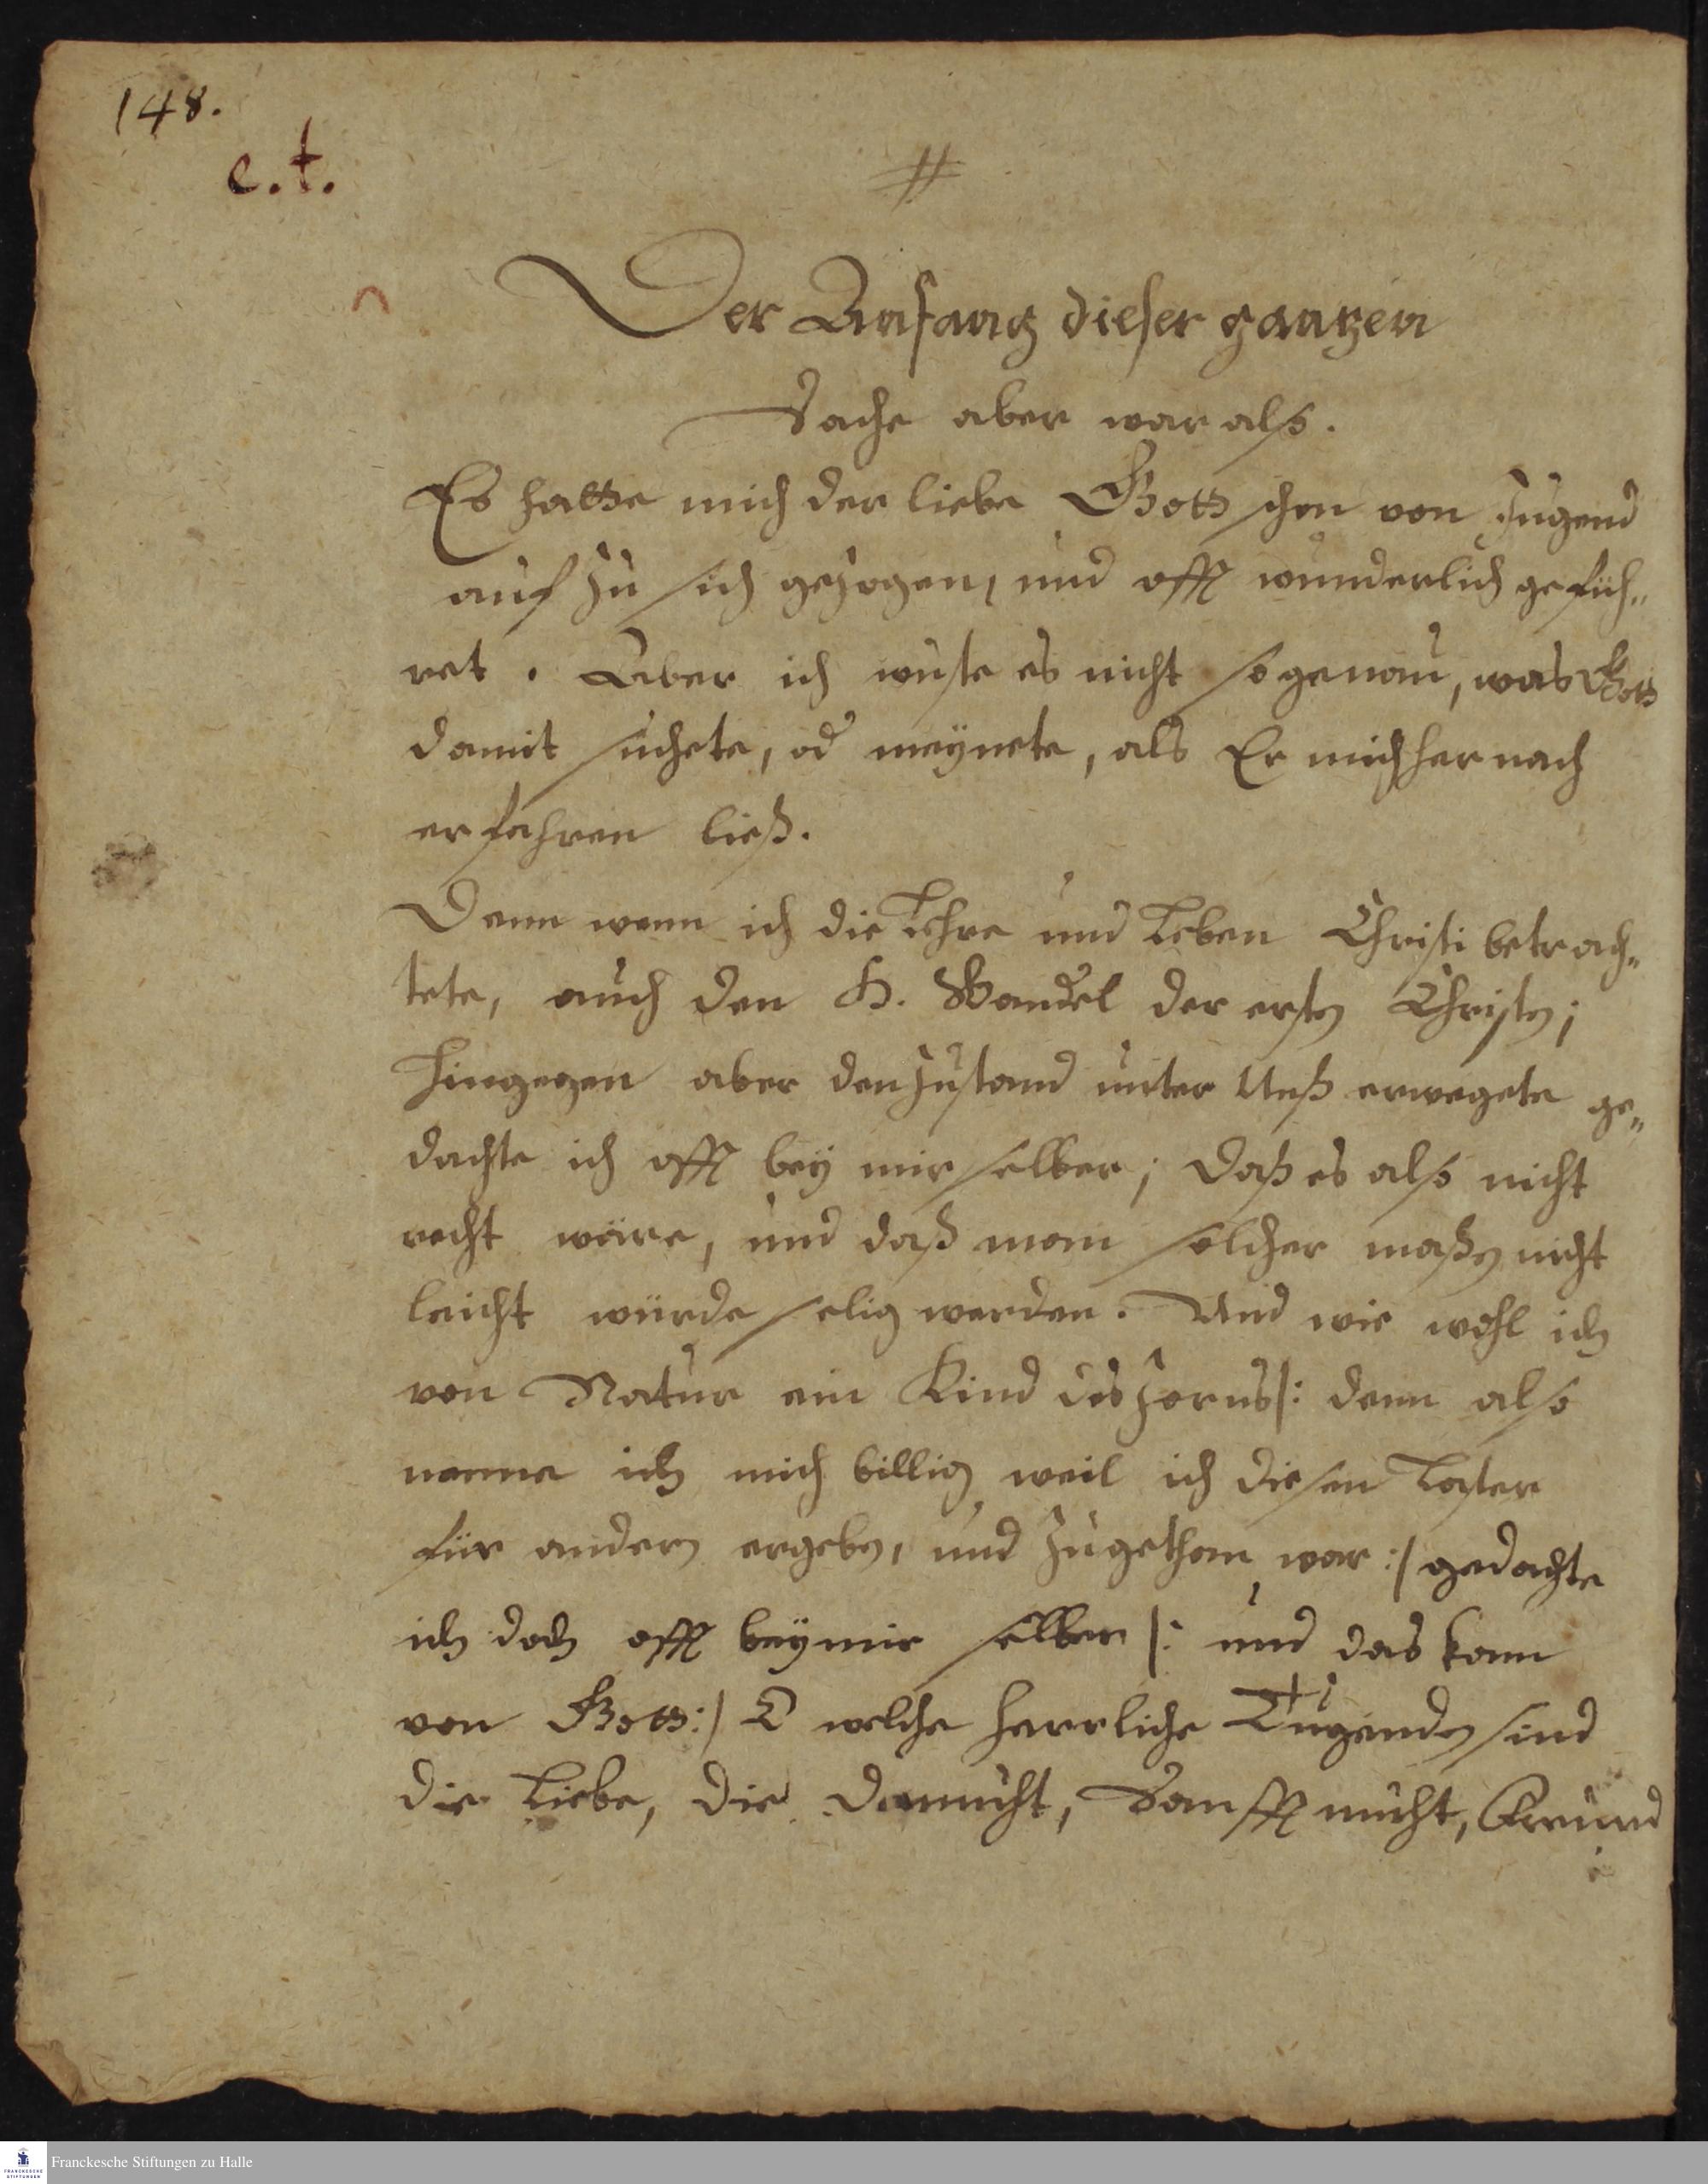 148.
e.t.
#
Der Anfang dieser gantzen
Sache aber war also.
Es hatte mich der liebe Gott schon von Jugend
auf zu sich gezogen, und offt wunderlich gefüh„
ret. Aber ich wuste es nicht so genau, was Gott
damit suchete, od meynete, als Er mich hernach
erfahren ließ.
Denn wenn ich die Lehre und Leben Christi betrach„
tete, auch den H. Wandel der ersten Christen;
hingegen aber den Zustand unter Unß erwegete ge„
dachte ich offt bey mir selber; daß es also nicht
recht wäre, und daß man solcher maßen nicht
leicht würde selig werden. Und wie wohl ich
von Natur ein Kind des Zorns |: denn also
nenne ich mich billig weil ich diesen Laster
für andern ergeben, und zugethan war :| gedachte
ich doch offt bey mir selber |: und das kam
von Gott :| O welche herrliche Tugenden sind
die Liebe, die Demuht, Sanfftmuht, Freund
Franckesche Stiftungen zu Halle
FRANCKESCHE
STIFTUNGEN